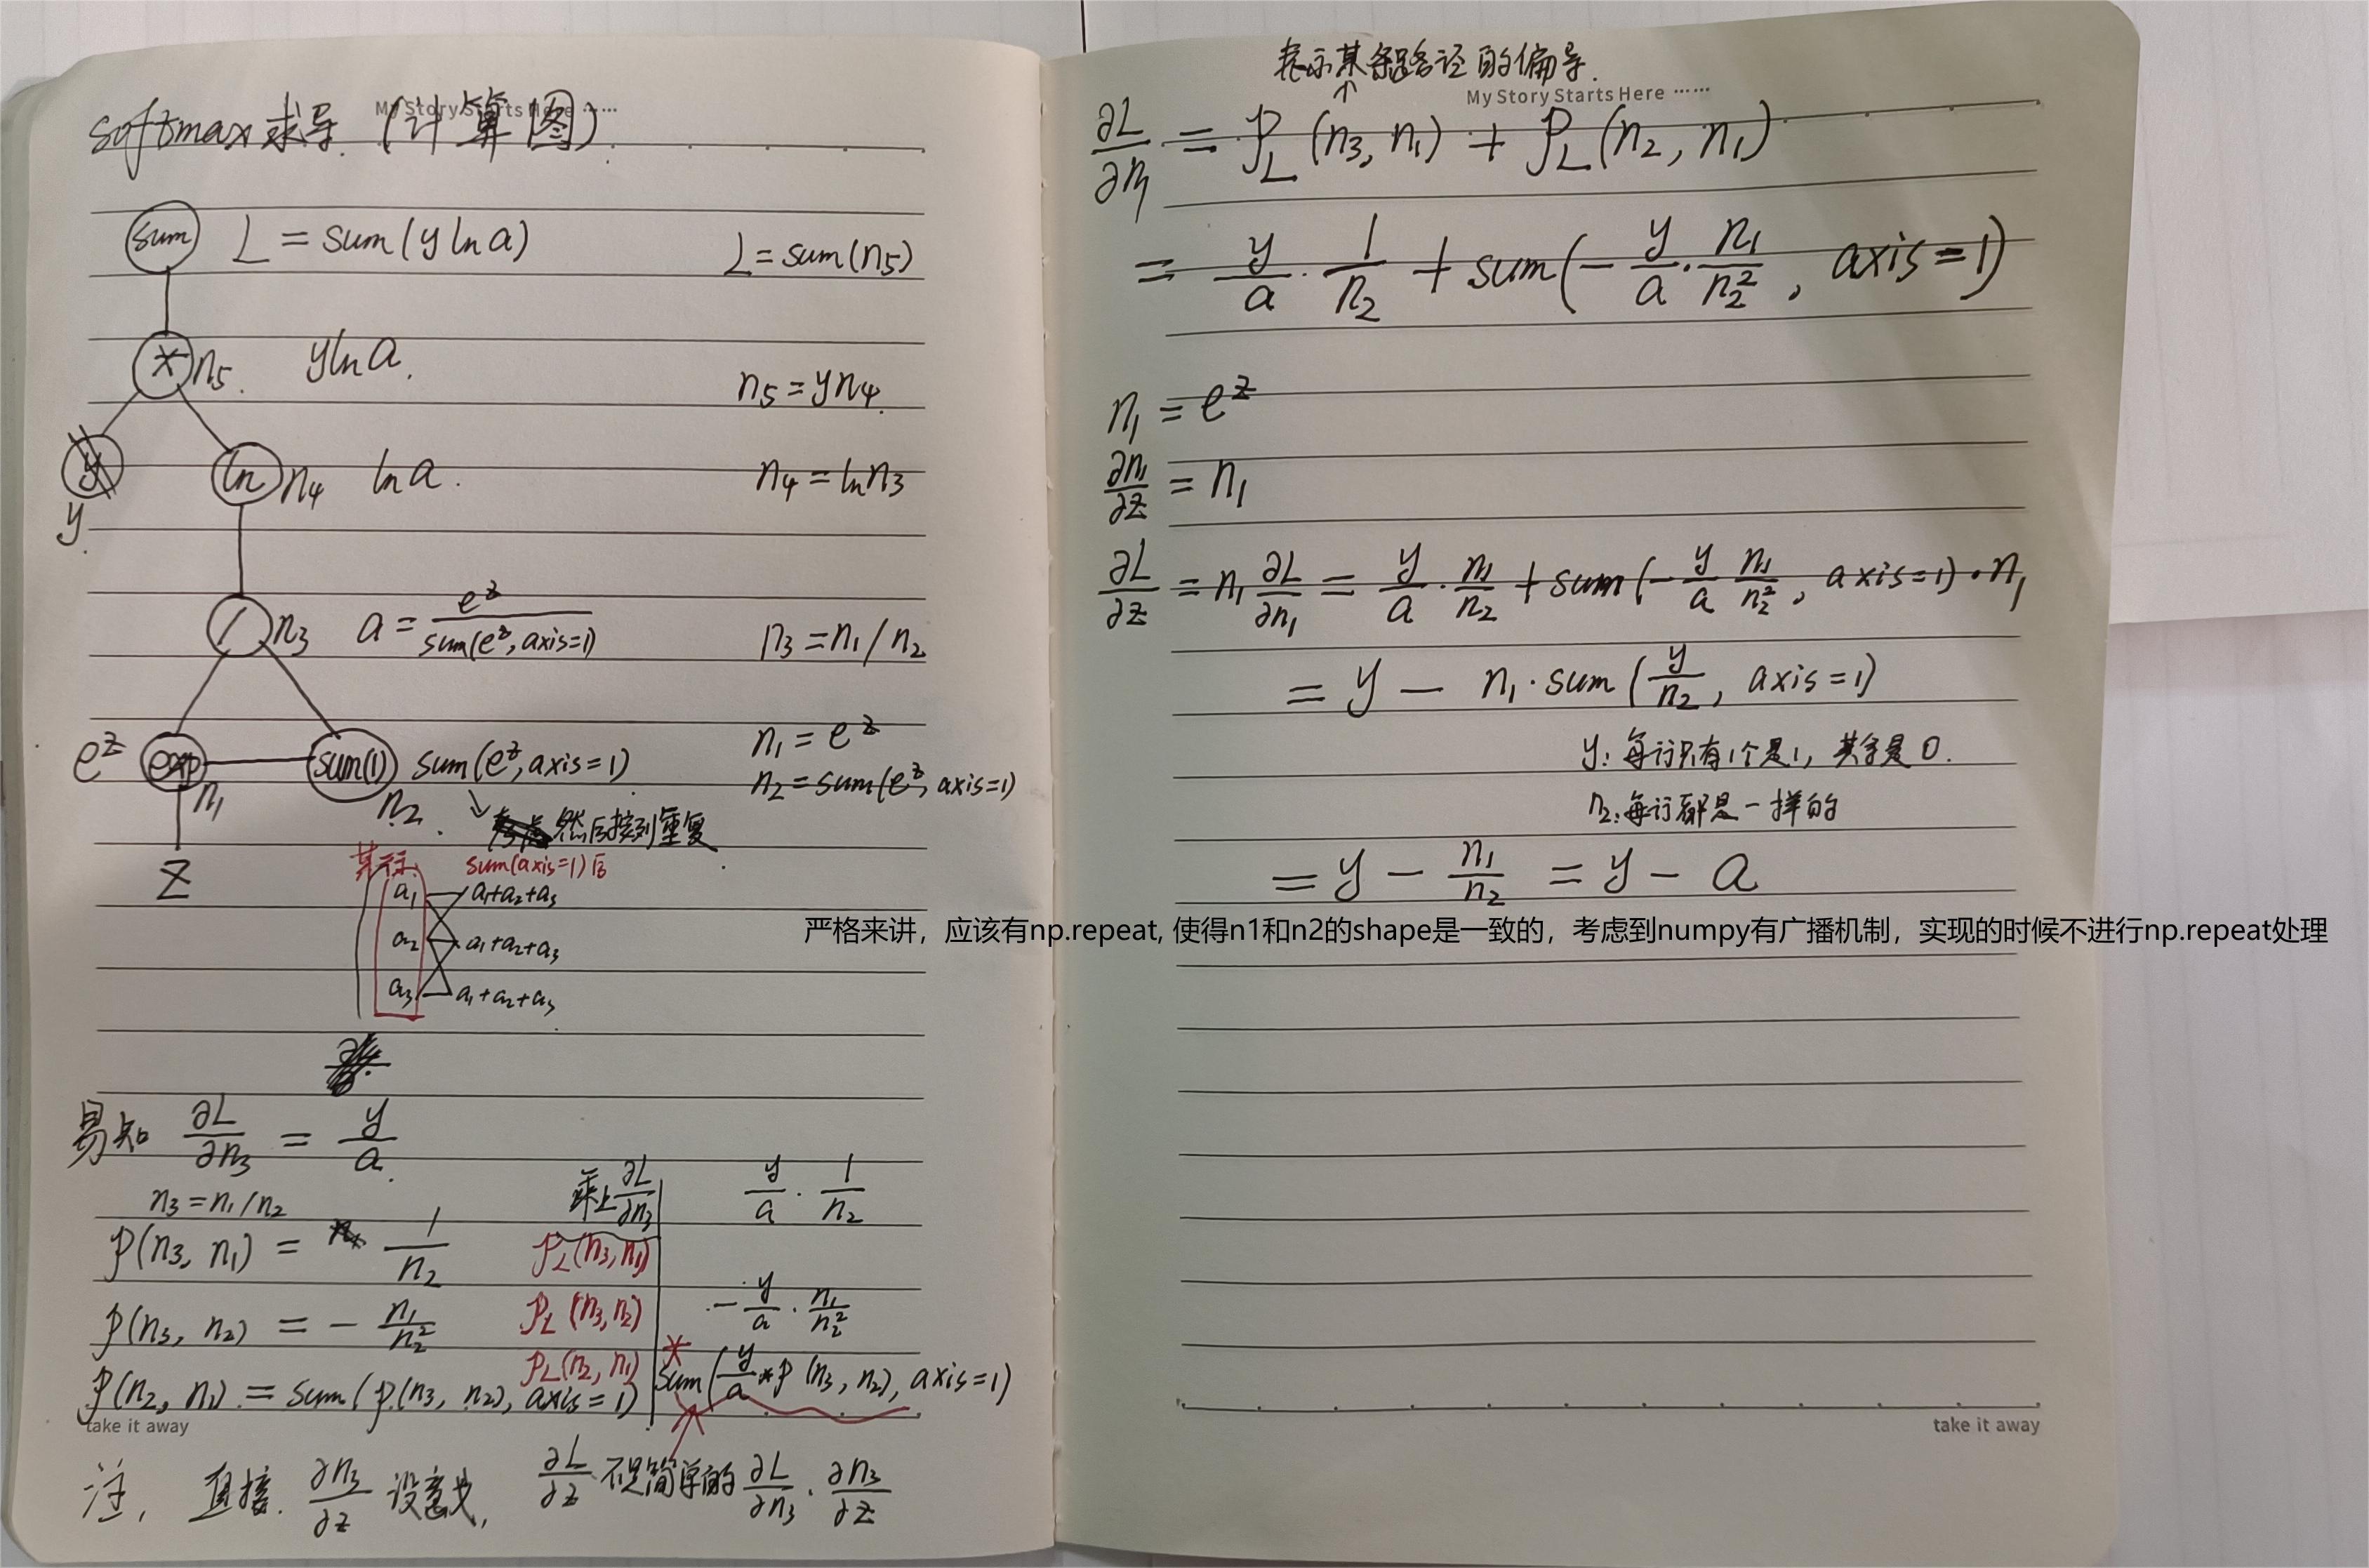 My Story Starts Here ······
softmax求导 (计算图).
sum L = sum(y ln a) L = sum(n₅)
* n₅. y ln a. n₅ = yn₄.
y ln n₄ ln a. n₄ = ln n₃
y.
/ n₃ a = e^z / sum(e^z, axis=1) n₃ = n₁ / n₂
n₁ = e^z
e^z exp n₁ sum(1) n₂. sum(e^z, axis=1) n₂ = sum(e^z, axis=1)
然后按列重复
某行 sum(axis=1)后
z
a₁ a₁+a₂+a₃
a₂ a₁+a₂+a₃
a₃ a₁+a₂+a₃
易知 ∂L/∂n₃ = y/a.
n₃ = n₁/n₂ 乘上 ∂L/∂n₃ y/a · 1/n₂
p(n₃, n₁) = 1/n₂ p_L(n₃, n₁)
p(n₃, n₂) = - n₁/n₂² p_L(n₃, n₂) - y/a · n₁/n₂²
p_L(n₂, n₁) *
p(n₂, n₁) = sum(p(n₃, n₂), axis=1) sum(y/a * p(n₃, n₂), axis=1)
take it away
注, 直接. ∂n₃/∂z 没意义, ∂L/∂z 不是简单的 ∂L/∂n₃ · ∂n₃/∂z
表示某条路径的偏导.
My Story Starts Here ······
∂L/∂n₁ = p_L(n₃, n₁) + p_L(n₂, n₁)
= y/a · 1/n₂ + sum(- y/a · n₁/n₂², axis=1)
n₁ = e^z
∂n₁/∂z = n₁
∂L/∂z = n₁ ∂L/∂n₁ = y/a · n₁/n₂ + sum(- y/a n₁/n₂², axis=1) · n₁
= y - n₁ · sum(y/n₂, axis=1)
y: 每行只有1个是1, 其余是0.
n₂: 每行都是一样的
= y - n₁/n₂ = y - a
严格来讲，应该有np.repeat, 使得n1和n2的shape是一致的，考虑到numpy有广播机制，实现的时候不进行np.repeat处理
take it away